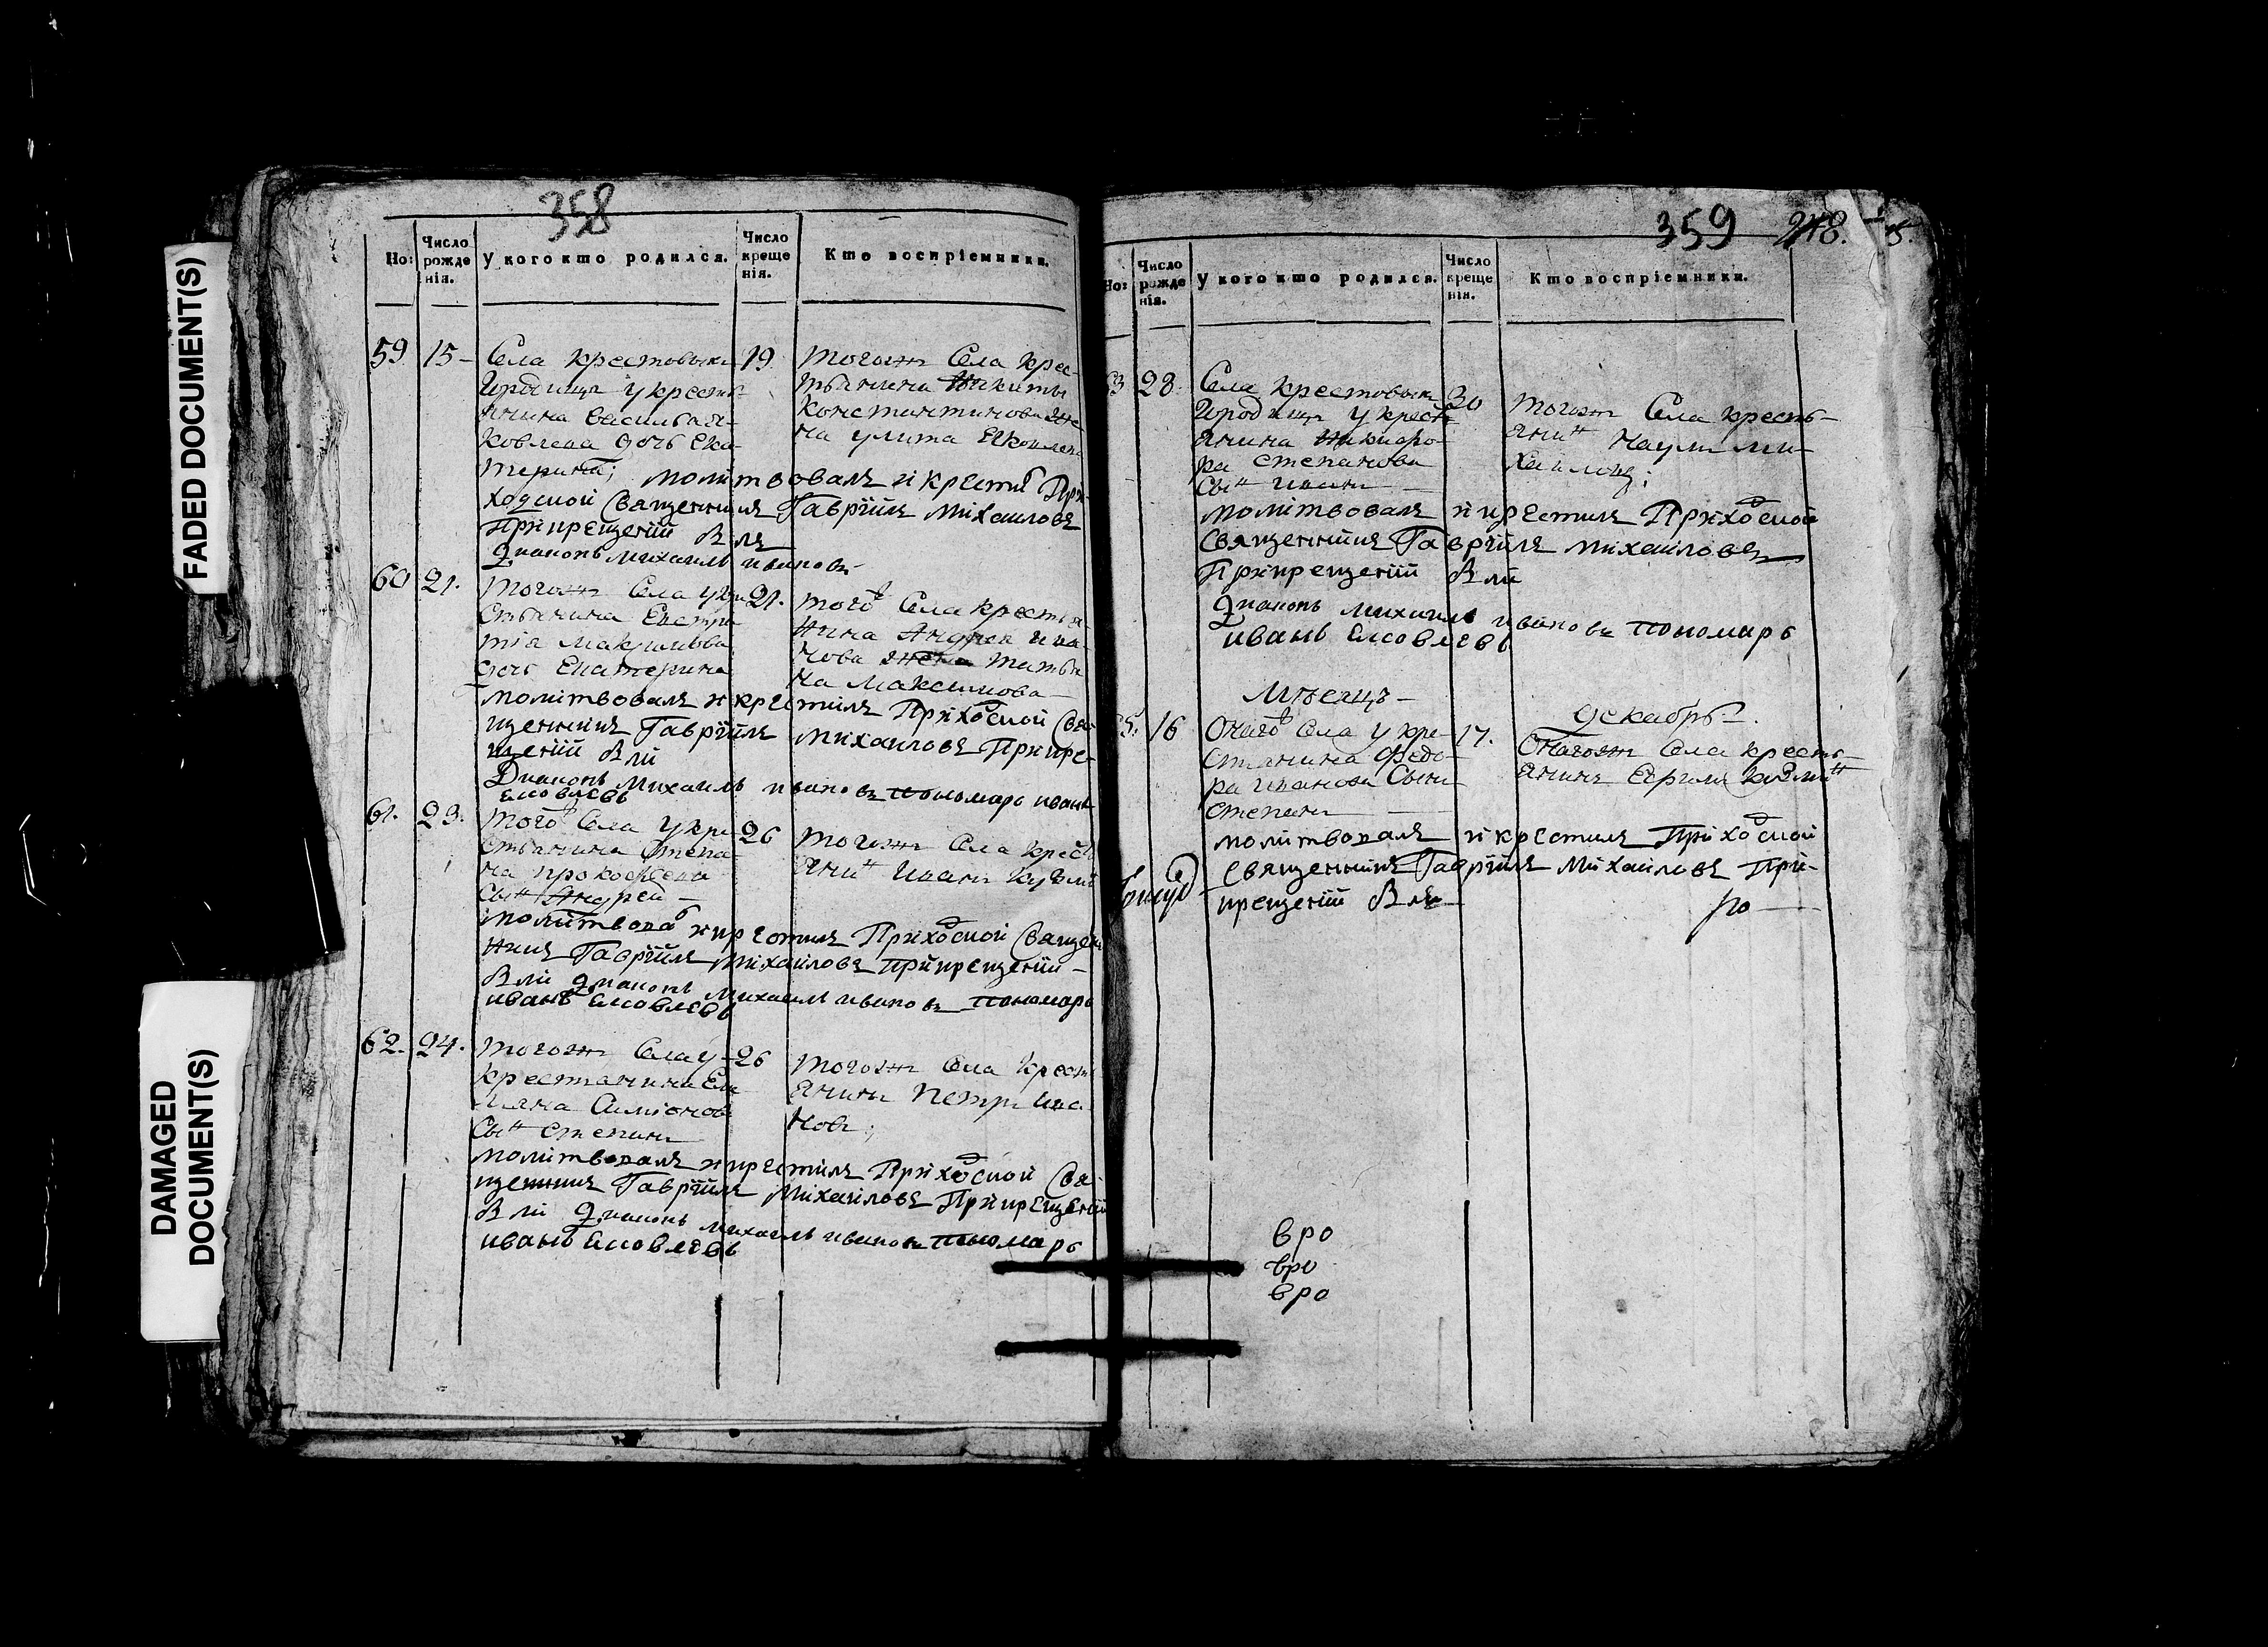 FADED DOCUMENT(S)
DAMAGED
DOCUMENT(S)
358
Но:
Число рожде нія.
У кого кто родился.
Число креще нія.
Кто воспріемники.
59
15
Села крестовыхъ
Городищъ у кресть
янина Василья я
ковлева дочь Ека
терина;
19
тогожъ Села крес
тьянина Никиты
Константинова же
на улита
молитвовалъ и крестил При
ходской Священникъ Гавріилъ Михаиловъ
При крещеніи былъ
диаконъ михаилъ ивановъ
60
21.
тогожъ Села у кре
стьянина
дочь Екатерина
21.
того Села крестья
нина Андрея ива
нова жена татья
на Максимова
молитвовалъ и крестилъ Приходской Свя
щенникъ Гавріилъ Михаиловъ При кре
щеніи были
Диаконъ Михаилъ ивановъ пономарь иванъ
яковлевъ
61.
23.
того Села у кре
стьянина Степа
на прокофьева
Сынъ Андрей
26
тогожъ Села кресть
янинъ Иванъ
молитвовал и крестилъ Приходской Священ
никъ Гавріилъ Михаиловъ При крещеніи
были диаконъ Михаилъ ивановъ пономарь
иванъ яковлевъ
62.
24.
тогожъ Села у
крестянина Ем
ильяна Симіонов
Сынъ Степанъ
26
тогожъ Села крестъ
янинъ Петръ Ива
новъ;
молитвовалъ и крестилъ Приходской Свя
щенникъ Гавріилъ Михаиловъ При крещеніи
были диаконъ михаилъ ивановъ пономарь
иванъ яковлевъ
359
248.
Но:
Число рожде нія.
У кого кто родился.
Число креще нія.
Кто воспріемники.
63
28.
Села крестовыхъ
Городищъ у кресть
янина Никифо
ра Степанова
Сынъ Иванъ
30
тогожъ Села кресть
янинъ Наумъ Ми
хаиловъ;
молитвовалъ и крестилъ Приходской
Священникъ Гавріилъ Михаиловъ
При крещеніи были
диаконъ Михаилъ ивановъ пономарь
иванъ яковлевъ
Мѣсяцъ
декабрь
16
Онаго Села у кре
стянина Федо
ра Иванова Сынъ
Степанъ
17.
Онагожъ Села кресть
янинъ
молитвовалъ и крестилъ Приходской
Священникъ Гавріилъ Михаиловъ При
крещеніи былъ
ро
вро
вро
вро